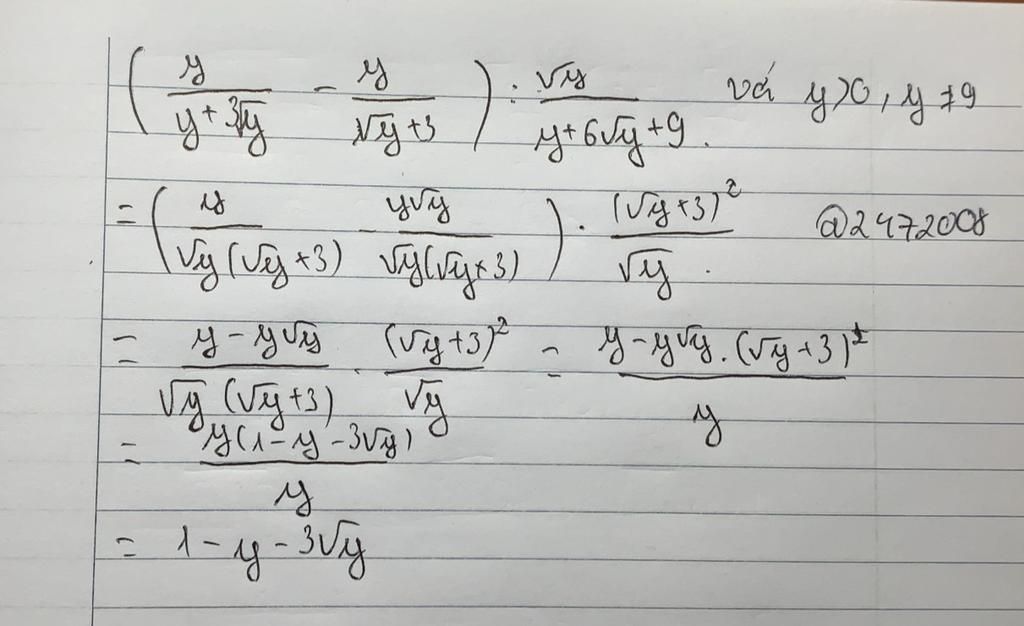 ( y/(y+3√y) - y/(√y+3) ) : √y/(y+6√y+9). với y>0, y≠9
= ( y/(√y(√y+3)) - y√y/(√y(√y+3)) ) . (√y+3)²/√y . @2472008
= (y-y√y)/(√y(√y+3)) . (√y+3)²/√y = (y-y√y.(√y+3)¹)/y
= y(1-y-3√y)/y
= 1-y-3√y